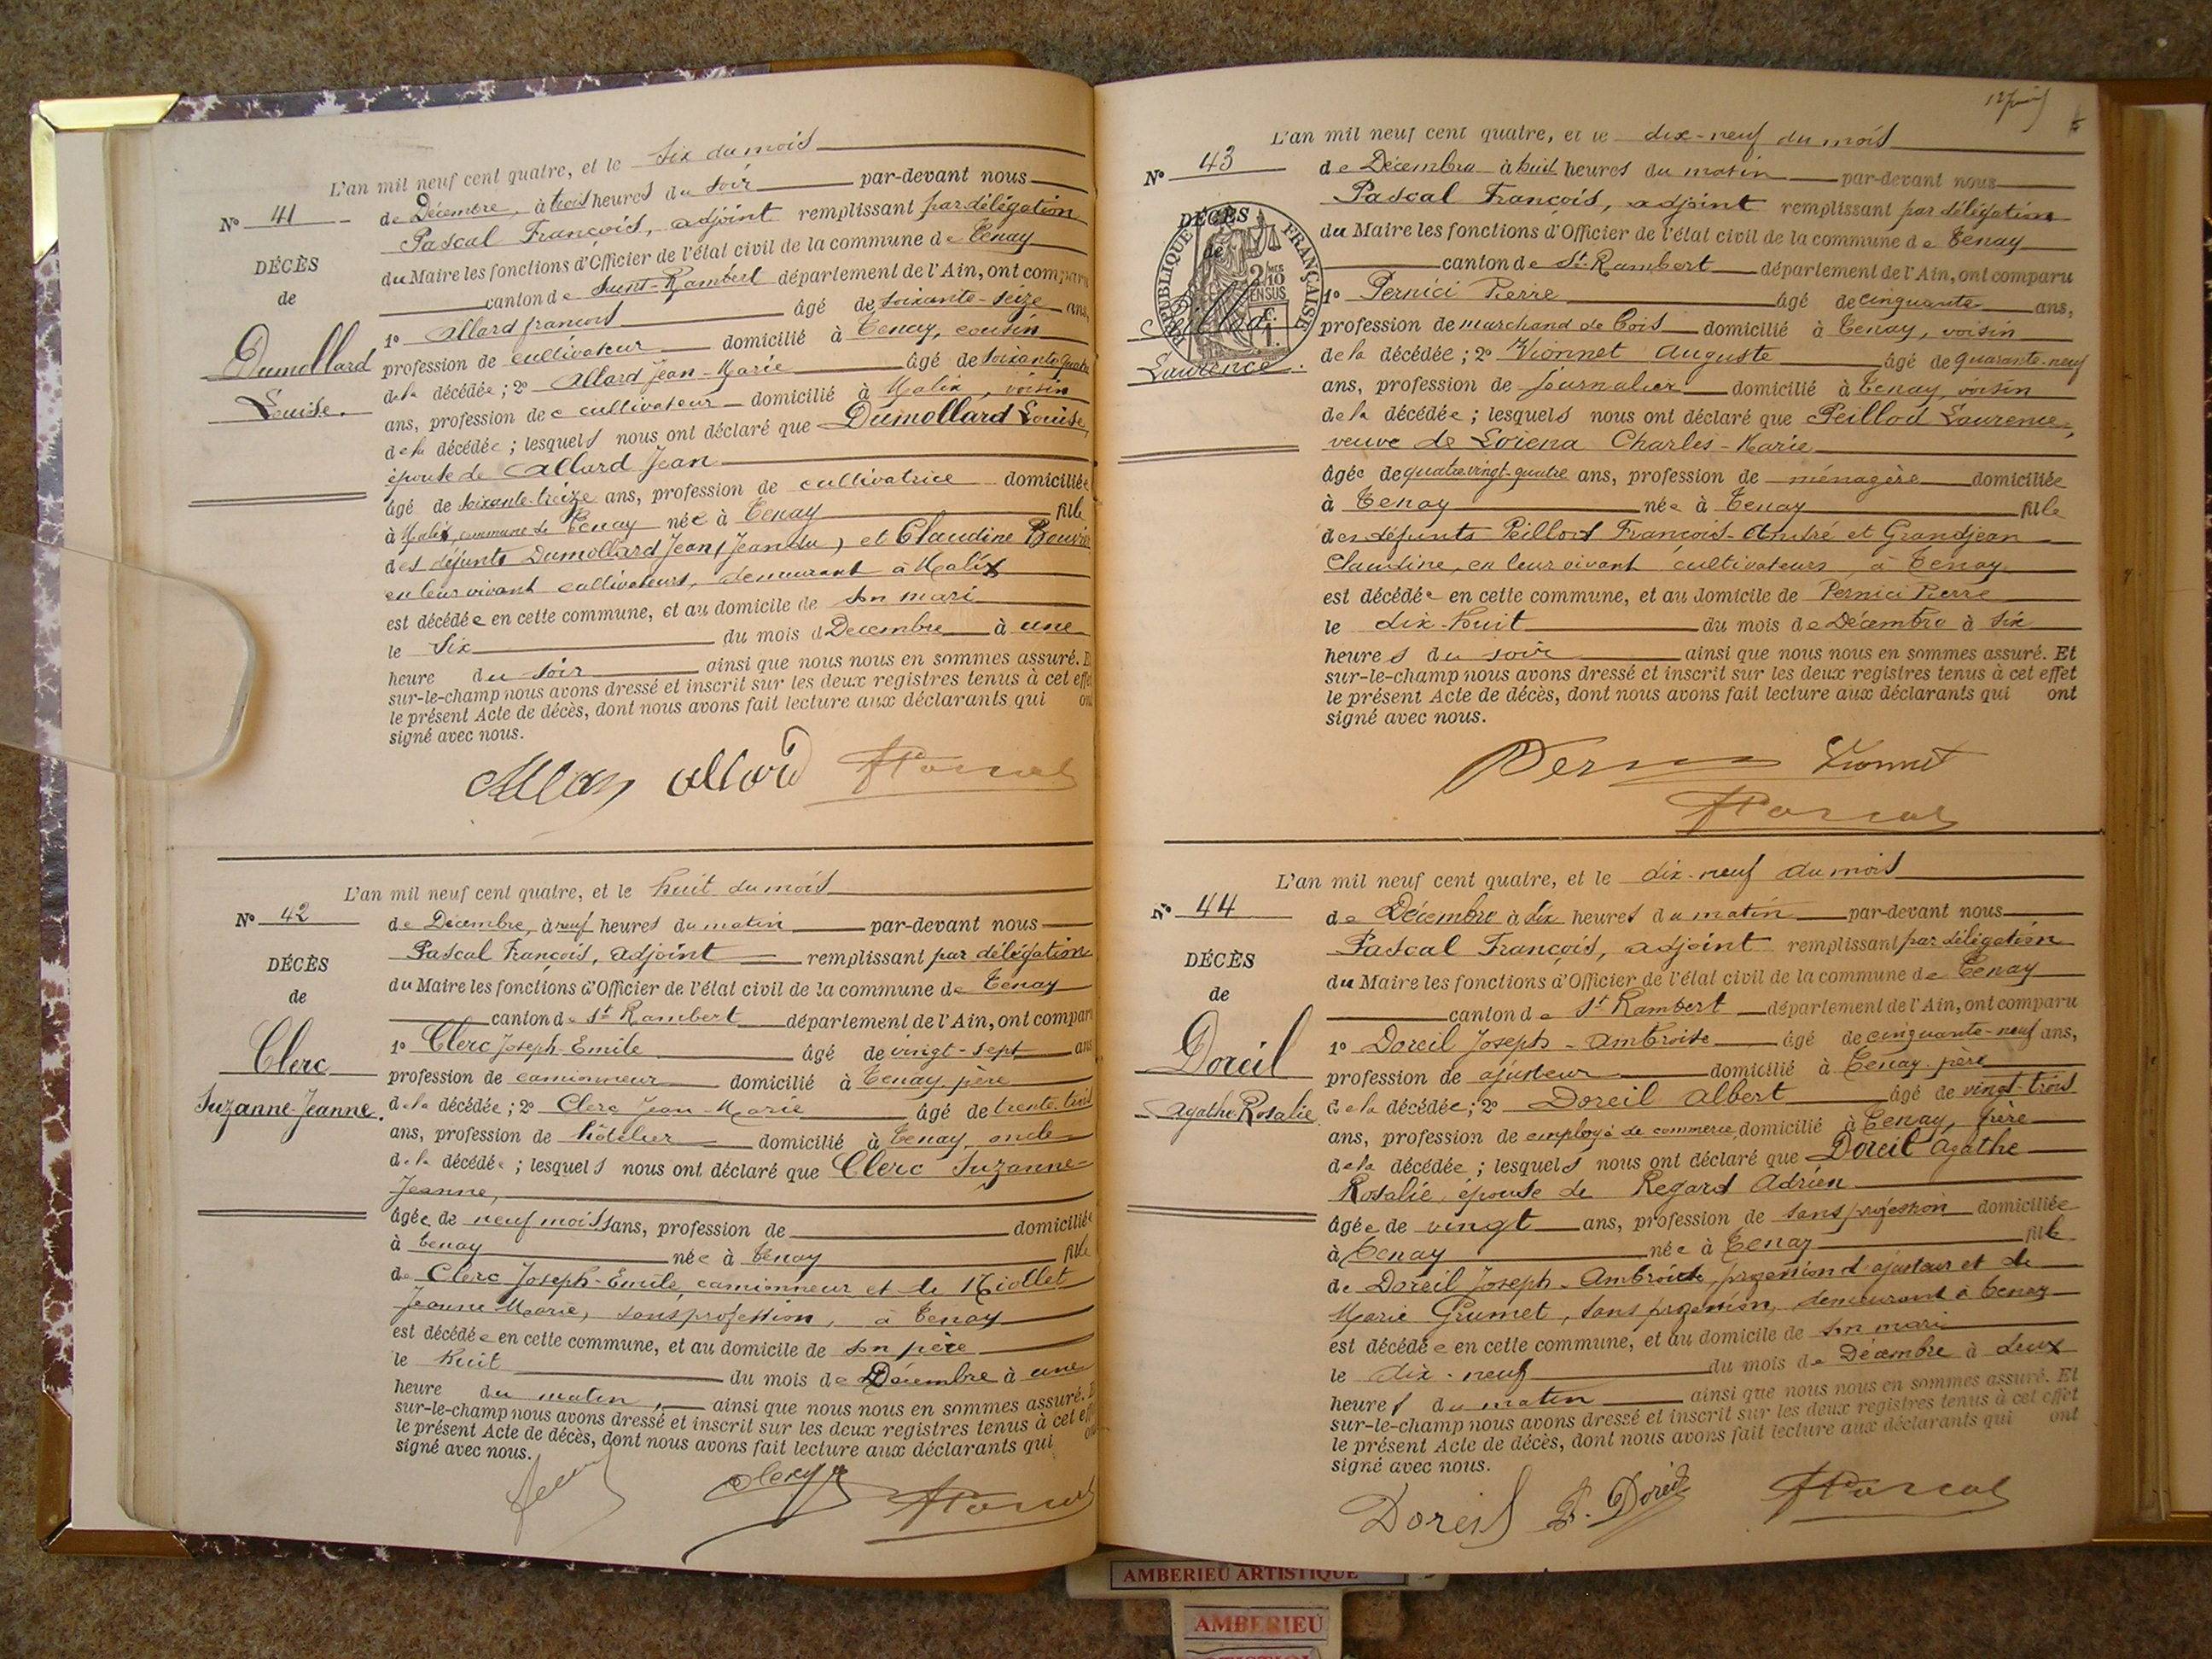 L'an mil neuf cent quatre, et le six du mois
N° 41
de Décembre, à trois heures du soir par-devant nous
Pascal François, adjoint remplissant par délégation
du Maire les fonctions d'Officier de l'état civil de la commune de Tenay
canton de Saint-Rambert département de l'Ain, ont comparu
DÉCÈS
de
Dumollard
Louise.
1° Allard françois âgé de soixante-seize ans,
profession de cultivateur domicilié à Tenay, cousin
de la décédée; 2° Allard Jean-Marie âgé de soixante quatre
ans, profession de cultivateur domicilié à Malix, voisin
de la décédée; lesquels nous ont déclaré que Dumollard Louise,
épouse de Allard Jean
âgé de soixante-treize ans, profession de cultivatrice domiciliée
à Malix, commune de Tenay née à Tenay fille
des défunts Dumollard Jean (Jeandu) et Claudine
en leur vivant cultivateurs, demeurant à Malix
est décédée en cette commune, et au domicile de son mari
le six du mois d Décembre à une
heure du soir ainsi que nous nous en sommes assuré. E
sur-le-champ nous avons dressé et inscrit sur les deux registres tenus à cet effet
le présent Acte de décès, dont nous avons fait lecture aux déclarants qui ont
signé avec nous.
Allard FPascal
L'an mil neuf cent quatre, et le huit du mois
N° 42
de Décembre, à neuf heures du matin par-devant nous
Pascal François, adjoint remplissant par délégation
du Maire les fonctions d'Officier de l'état civil de la commune de Tenay
canton de St Rambert département de l'Ain, ont comparu
DÉCÈS
de
Clerc
Suzanne-Jeanne.
1° Clerc Joseph-Emile âgé de vingt-sept ans
profession de camionneur domicilié à Tenay, père
de la décédée; 2° Clerc Jean-Marie âgé de trente-trois
ans, profession de hôtelier domicilié à Tenay, oncle
de la décédée; lesquels nous ont déclaré que Clerc Suzanne-
Jeanne,
âgée de neuf mois ans, profession de domiciliée
à Tenay née à Tenay fille
de Clerc Joseph-Emile, camionneur et de Miollet
Jeanne Marie, sans profession, à Tenay
est décédée en cette commune, et au domicile de son père
le huit du mois de Décembre à une
heure du matin, ainsi que nous nous en sommes assuré. E
sur-le-champ nous avons dressé et inscrit sur les deux registres tenus à cet effet
le présent Acte de décès, dont nous avons fait lecture aux déclarants qui ont
signé avec nous.
FPascal
L'an mil neuf cent quatre, et le dix-neuf du mois
N° 43
de Décembre à huit heures du matin par-devant nous
Pascal François, adjoint remplissant par délégation
du Maire les fonctions d'Officier de l'état civil de la commune de Tenay
canton de St-Rambert département de l'Ain, ont comparu
DÉCÈS
de
RÉPUBLIQUE FRANÇAISE
2/10
EN SUS
Peillod
Laurence.
1° Pernici Pierre âgé de cinquante ans,
profession de marchand de bois domicilié à Tenay, voisin
de la décédée; 2° Vionnet Auguste âgé de quarante-neuf
ans, profession de journalier domicilié à Tenay, voisin
de la décédée; lesquels nous ont déclaré que Peillod Laurence,
veuve de Lorena Charles-Marie
âgée de quatre vingt-quatre ans, profession de ménagère domiciliée
à Tenay née à Tenay fille
des défunts Peillod François-André et Grandjean
Claudine, en leur vivant cultivateurs à Tenay
est décédée en cette commune, et au domicile de Pernici Pierre
le dix-huit du mois de Décembre à six
heures du soir ainsi que nous nous en sommes assuré. Et
sur-le-champ nous avons dressé et inscrit sur les deux registres tenus à cet effet
le présent Acte de décès, dont nous avons fait lecture aux déclarants qui ont
signé avec nous.
Vionnet
FPascal
L'an mil neuf cent quatre, et le dix-neuf du mois
N° 44
de Décembre à dix heures du matin par-devant nous
Pascal François, adjoint remplissant par délégation
du Maire les fonctions d'Officier de l'état civil de la commune de Tenay
canton de St Rambert département de l'Ain, ont comparu
DÉCÈS
de
Doreil
Agathe Rosalie
1° Doreil Joseph-Ambroise âgé de cinquante-neuf ans,
profession de ajusteur domicilié à Tenay père
de la décédée; 2° Doreil Albert âgé de vingt-trois
ans, profession de employé de commerce, domicilié à Tenay, frère
de la décédée; lesquels nous ont déclaré que Doreil Agathe
Rosalie, épouse de Regard Adrien
âgée de vingt ans, profession de sans profession domiciliée
à Tenay née à Tenay fille
de Doreil Joseph-Ambroise, profession d'ajusteur et de
Marie Grumet, sans profession, demeurant à Tenay
est décédée en cette commune, et au domicile de son mari
le dix-neuf du mois de Décembre à deux
heures du matin ainsi que nous nous en sommes assuré. Et
sur-le-champ nous avons dressé et inscrit sur les deux registres tenus à cet effet
le présent Acte de décès, dont nous avons fait lecture aux déclarants qui ont
signé avec nous.
Doreil Doreil FPascal
AMBERIEU ARTISTIQUE
AMBERIEU